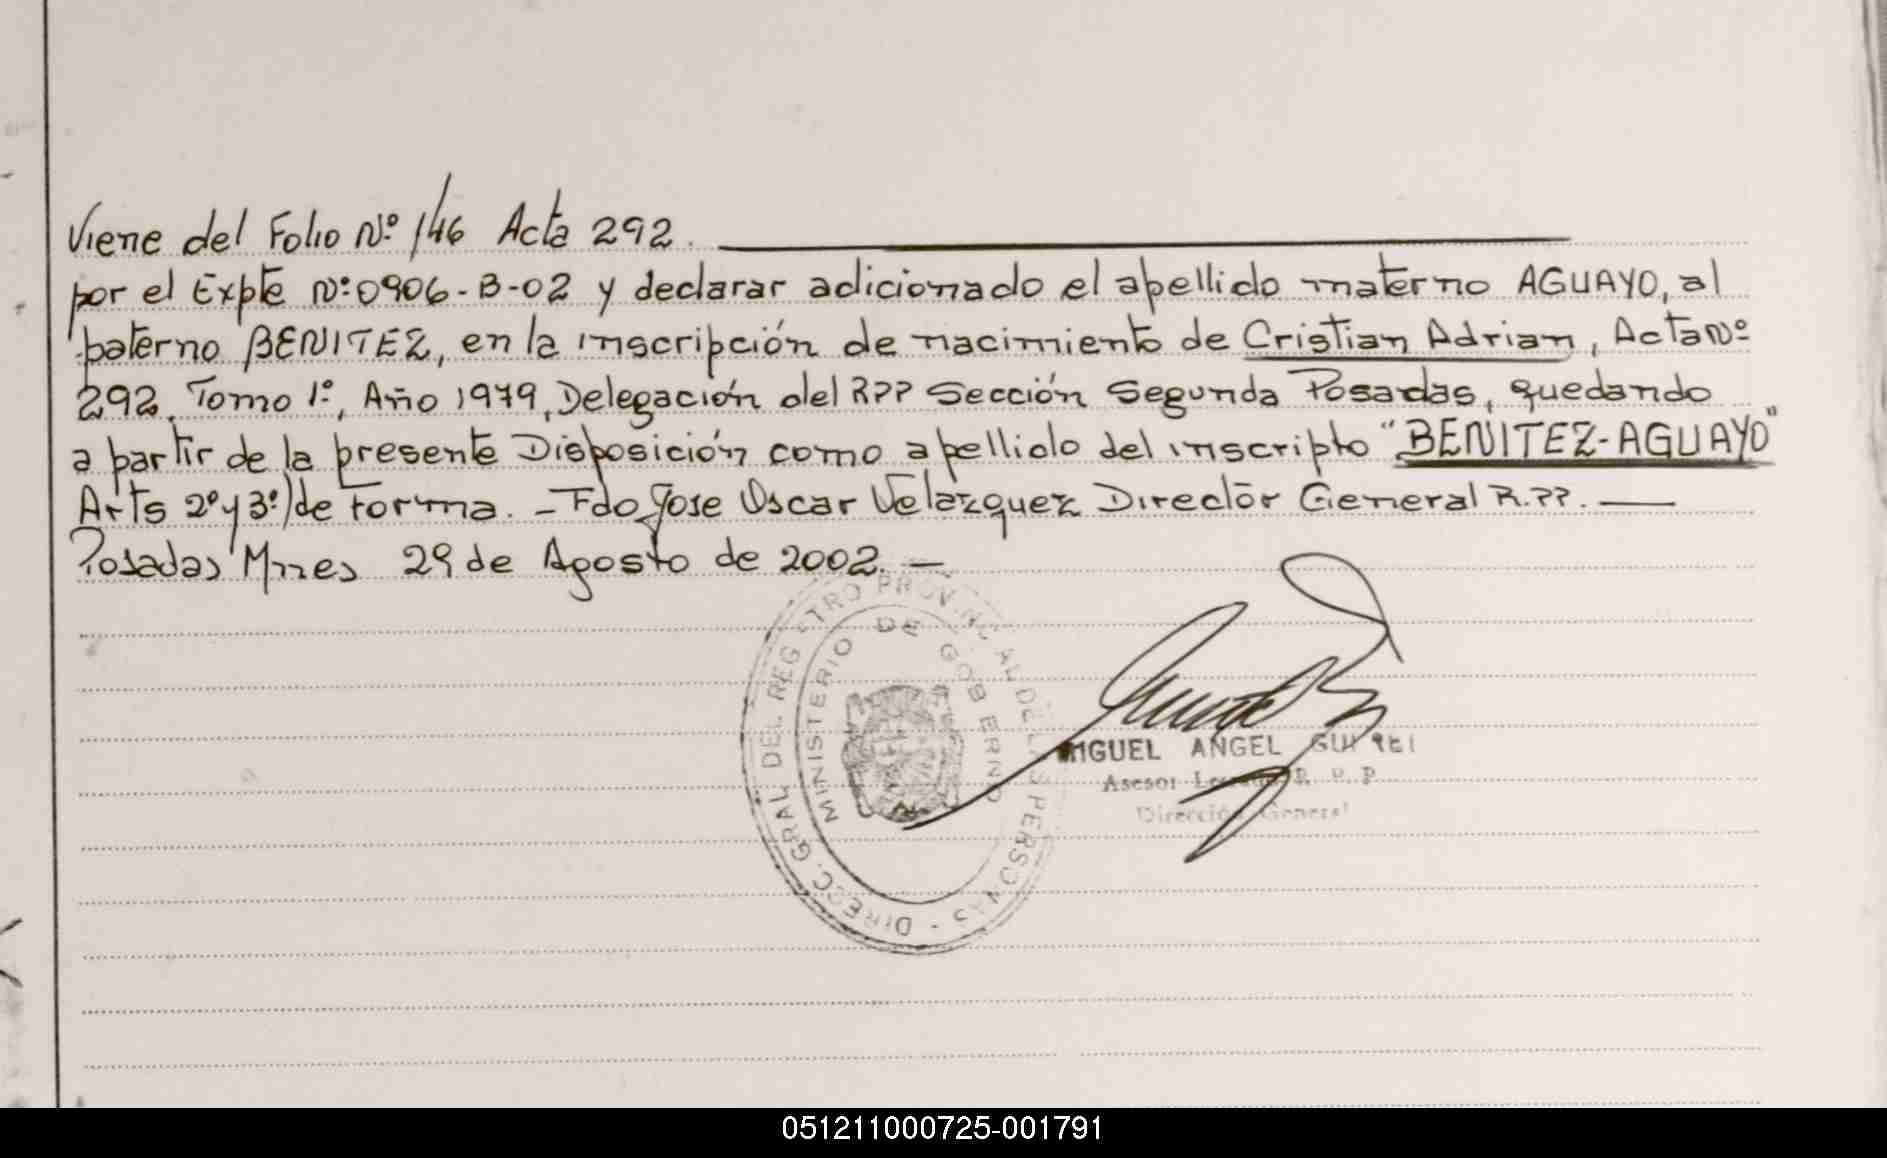 Viene del Folio Nº 146 Acta 292.
por el Expte Nº:0906-B-02 y declarar adicionado el apellido materno AGUAYO, al
paterno BENITEZ, en la inscripción de nacimiento de Cristian Adrian, Acta Nº
292, Tomo 1º, Año 1979, Delegación del RPP Sección Segunda Posadas, quedando
a partir de la presente Disposición como apellido del inscripto "BENITEZ-AGUAYO"
Arts 2º y 3º) de forma. - Fdo Jose Oscar Velazquez Director General R.PP.
Posadas Mnes 29 de Agosto de 2002. -
DIREC. GRAL DEL REGISTRO PROVINCIAL DE LAS PERSONAS -
MINISTERIO DE GOBIERNO
MIGUEL ANGEL
Asesor R. P. P
Dirección General
051211000725-001791